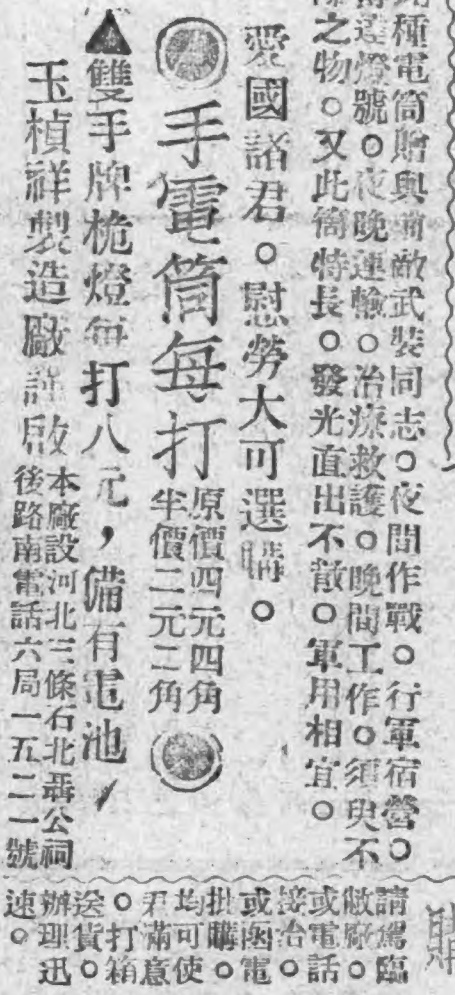 種電筒贈與前敵武裝同志。夜間作戰。行軍宿營。
燈號。夜晚運輸。治療救護。晚間工作。須臾不
之物。又此筒特長。發光直出不散。軍用相宜。
愛國諸君。慰勞大可選購。
手電筒每打
原價四元四角
半價二元二角
▲雙手牌桅燈每打八元，備有電池
玉楨祥製造廠謹啟
本廠設河北三條石北聶公祠
後路南電話六局一五二一號
請駕臨
敝廠。
或電話
接洽。
或函電
批購。
均可使
君滿意
。打箱
送貨。
辦理迅
速。